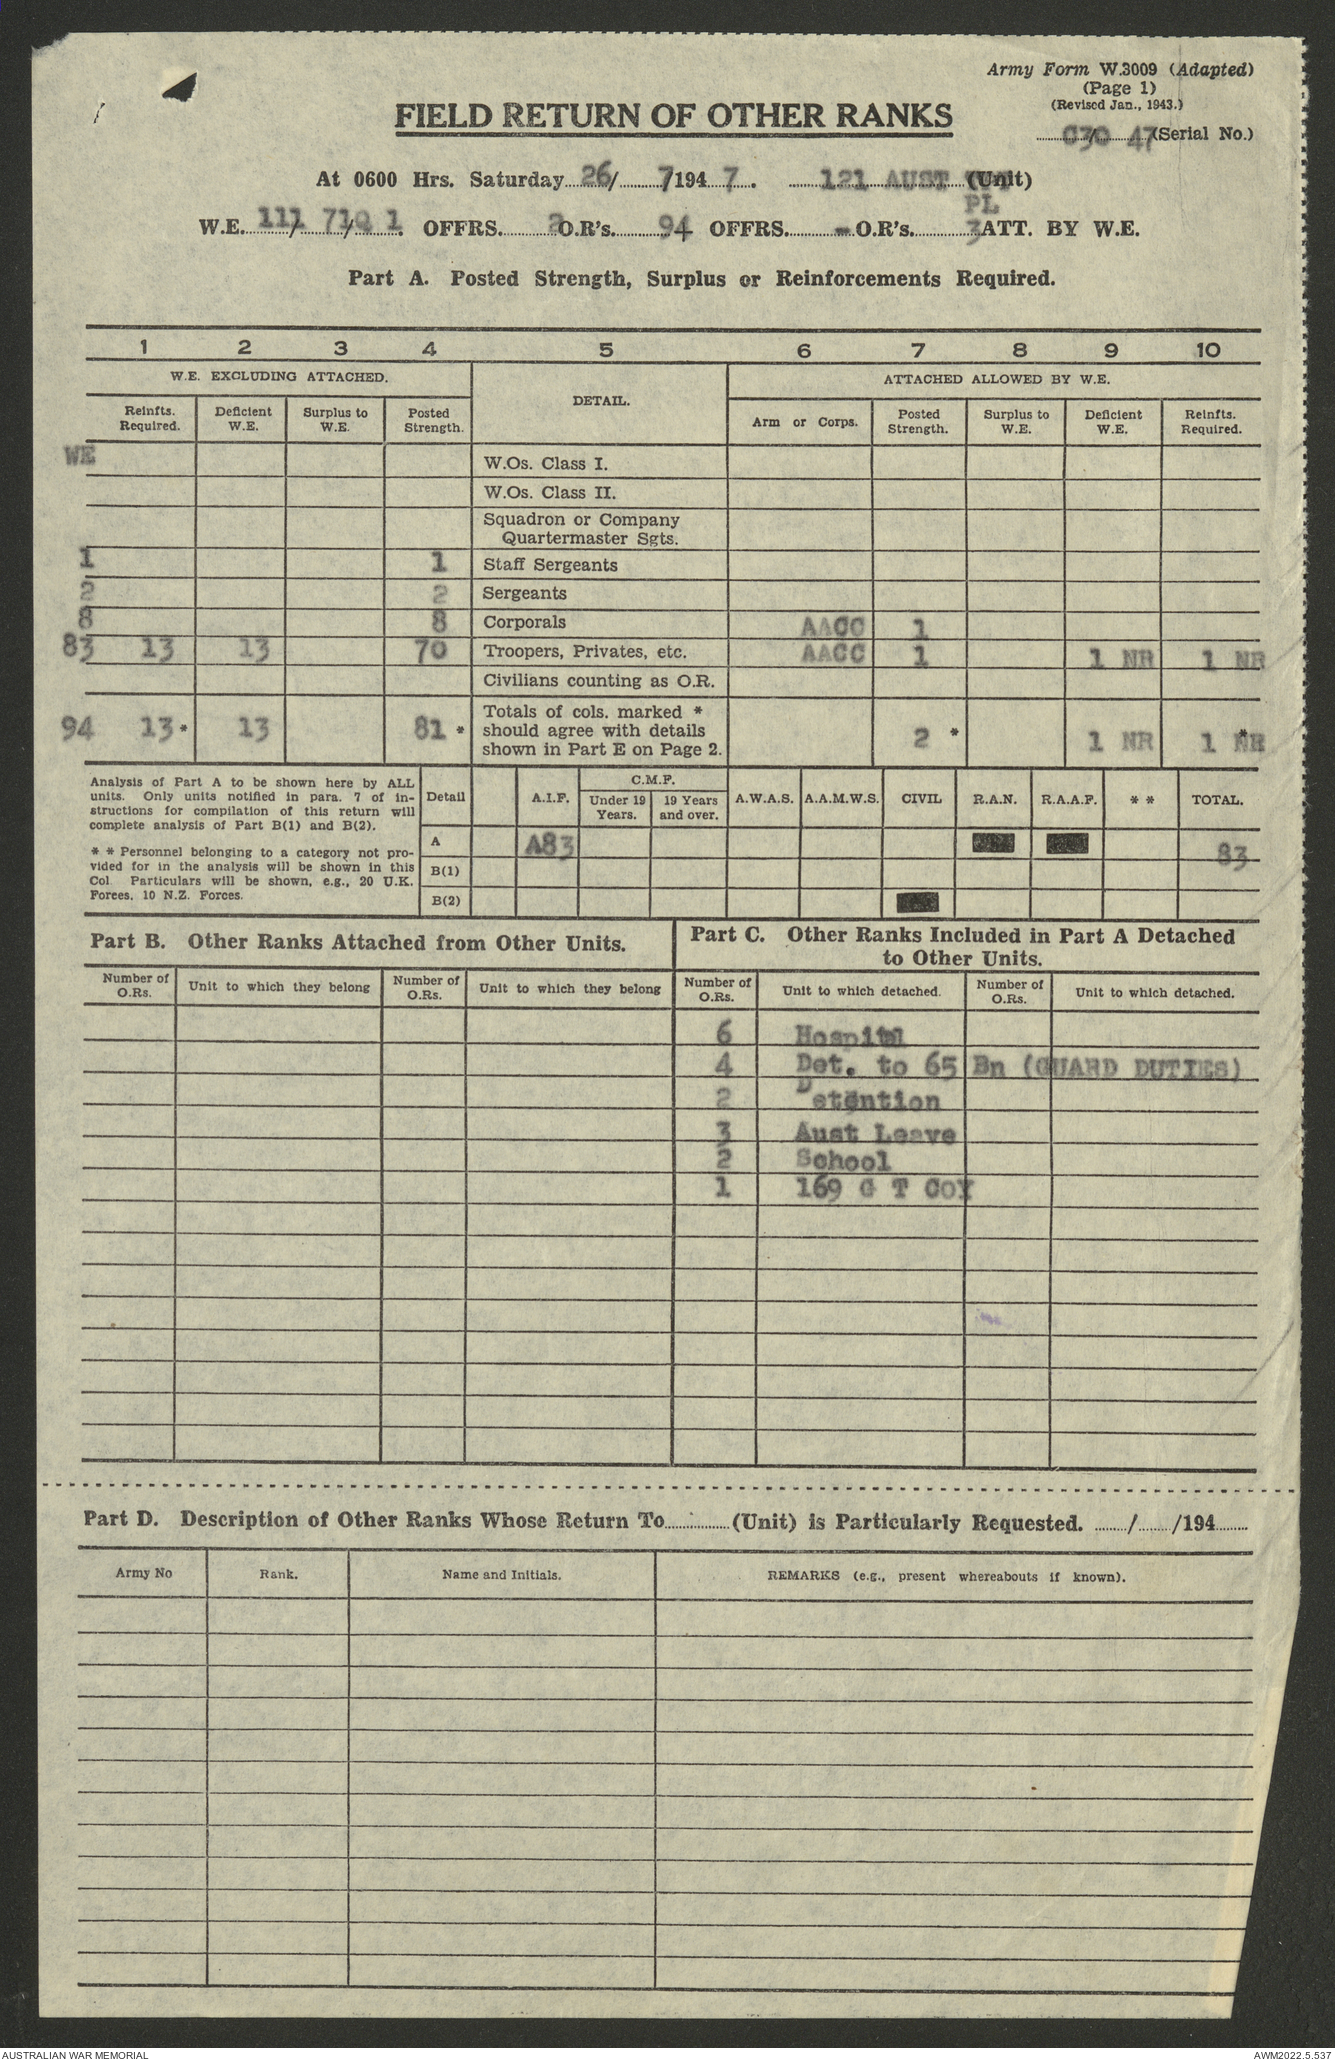 Army Form W.3009 (Adapted)
(Page 1)
(Revised Jan., 1943.)
FIELD RETURN OF OTHER RANKS
C30 47 (Serial No.)
At 0600 Hrs. Saturday 26/ 7 194 7. 121 AUST (Unit)
PL
W.E. 111/ 71/Q 1. OFFRS. 2 O.R's. 94 OFFRS. - O.R's. 3 ATT. BY W.E.
Part A. Posted Strength, Surplus or Reinforcements Required.
1 2 3 4 5 6 7 8 9 10
W.E. EXCLUDING ATTACHED. DETAIL. ATTACHED ALLOWED BY W.E.
Reinfts. Required. Deficient W.E. Surplus to W.E. Posted Strength. Arm or Corps. Posted Strength. Surplus to W.E. Deficient W.E. Reinfts. Required.
WE W.Os. Class I.
W.Os. Class II.
Squadron or Company
Quartermaster Sgts.
1 1 Staff Sergeants
2 2 Sergeants
8 8 Corporals AACC 1
83 13 13 70 Troopers, Privates, etc. AACC 1 1 NR 1 NR
Civilians counting as O.R.
Totals of cols. marked *
94 13 * 13 81 * should agree with details 2 * 1 NR 1 NR *
shown in Part E on Page 2.
Analysis of Part A to be shown here by ALL
units. Only units notified in para. 7 of in-
structions for compilation of this return will
complete analysis of Part B(1) and B(2).
* * Personnel belonging to a category not pro-
vided for in the analysis will be shown in this
Col Particulars will be shown, e.g., 20 U.K.
Forces, 10 N.Z. Forces.
Detail A.I.F. C.M.F. Under 19 Years. 19 Years and over. A.W.A.S. A.A.M.W.S. CIVIL R.A.N. R.A.A.F. * * TOTAL.
A A83 83
B(1)
B(2)
Part B. Other Ranks Attached from Other Units.
Number of O.Rs. Unit to which they belong Number of O.Rs. Unit to which they belong
Part C. Other Ranks Included in Part A Detached
to Other Units.
Number of O.Rs. Unit to which detached. Number of O.Rs. Unit to which detached.
6 Hospital
4 Det. to 65 Bn (GUARD DUTIES)
2 Detention
3 Aust Leave
2 School
1 169 G T COY
Part D. Description of Other Ranks Whose Return To (Unit) is Particularly Requested. / /194
Army No Rank. Name and Initials. REMARKS (e.g., present whereabouts if known).
AUSTRALIAN WAR MEMORIAL AWM2022.5.537